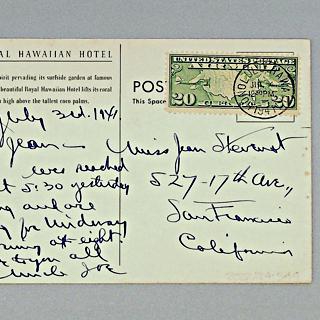 AL HAWAIIAN HOTEL
pirit pervading its surfside garden at famous
beautiful Royal Hawaiian Hotel lifts its coral
high above the tallest coco palms.
POST
This Space
UNITED STATES POSTAGE
20 CENTS 20
HONOLULU HAWAII
JUL 3
1941
July 3rd. 1941.
Jean -
was reached
at 5:30 yesterday
and are
for Midway
at eight.
to you all
Uncle Joe
Miss Jean Stewart
527-17th Ave.,
San Francisco
California